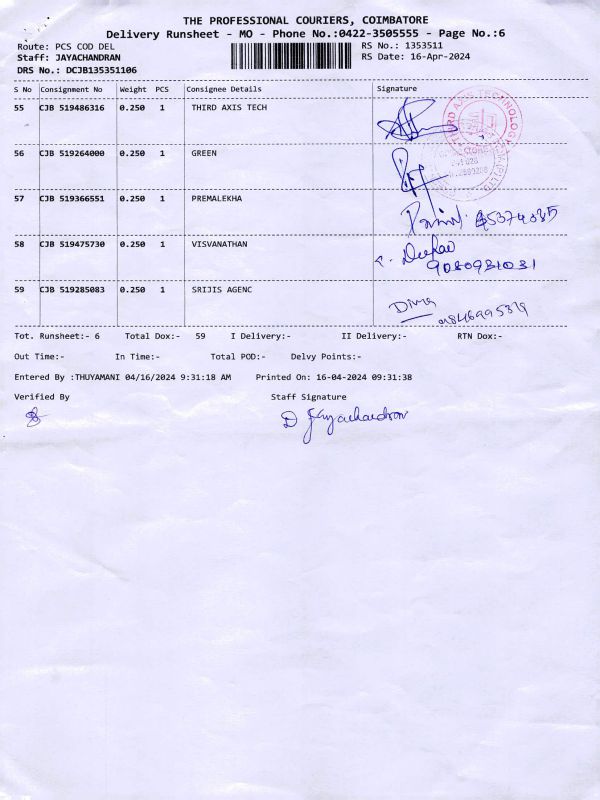 THE PROFESSIONAL COURIERS, COIMBATORE
Delivery Runsheet - MO - Phone No.:0422-3505555 - Page No.:6
Route: PCS COD DEL RS No.: 1353511
Staff: JAYACHANDRAN RS Date: 16-Apr-2024
DRS No.: DCJB135351106
S No Consignment No Weight PCS Consignee Details Signature
55 CJB 519486316 0.250 1 THIRD AXIS TECH
56 CJB 519264000 0.250 1 GREEN
57 CJB 519366551 0.250 1 PREMALEKHA
58 CJB 519475730 0.250 1 VISVANATHAN
9080931031
59 CJB 519285083 0.250 1 SRIJIS AGENC
Divya
Tot. Runsheet:- 6 Total Dox:- 59 I Delivery:- II Delivery:- RTN Dox:-
Out Time:- In Time:- Total POD:- Delvy Points:-
Entered By :THUYAMANI 04/16/2024 9:31:18 AM Printed On: 16-04-2024 09:31:38
Verified By Staff Signature
D Jayachandran